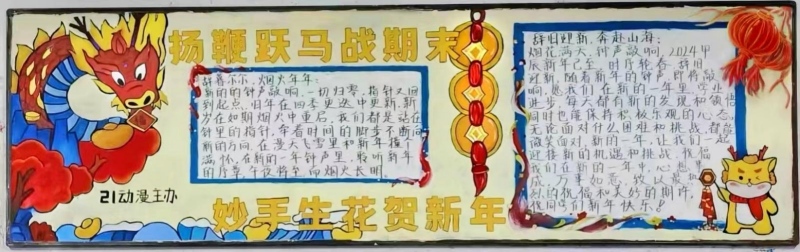 扬鞭跃马战期末
辞暮尔尔,烟火年年:
新的的钟声敲响,一切归零,指针又回
到起点,归年在四季更迭中更新,新
岁在如期烟火中重启,我们都是站在
钟里的指针,奔着时间的脚步不断向
新的方向,在漫天飞雪里和新年撞个
满怀,在新的一年钟声里,聆听新年
的序章,午夜将至,而烟火长明
辞旧迎新,奔赴山海:
烟花满天,钟声敲响,2024甲
辰新年已至,时序轮春,辞旧
迎新,随着新年的钟声即将敲
响,愿我们在新的一年里,学业
进步,每天都有新的发现和领悟
同时也能保持积极乐观的心态,
无论面对什么困难和挑战,都能
微笑面对,新的一年,让我们一起
迎接新的机遇和挑战,祝福
我们在新的一年里,心想事
成,万事如意,致以最
的祝福和美好的期许,
祝同学们新年快乐!
21动漫主办
妙手生花贺新年